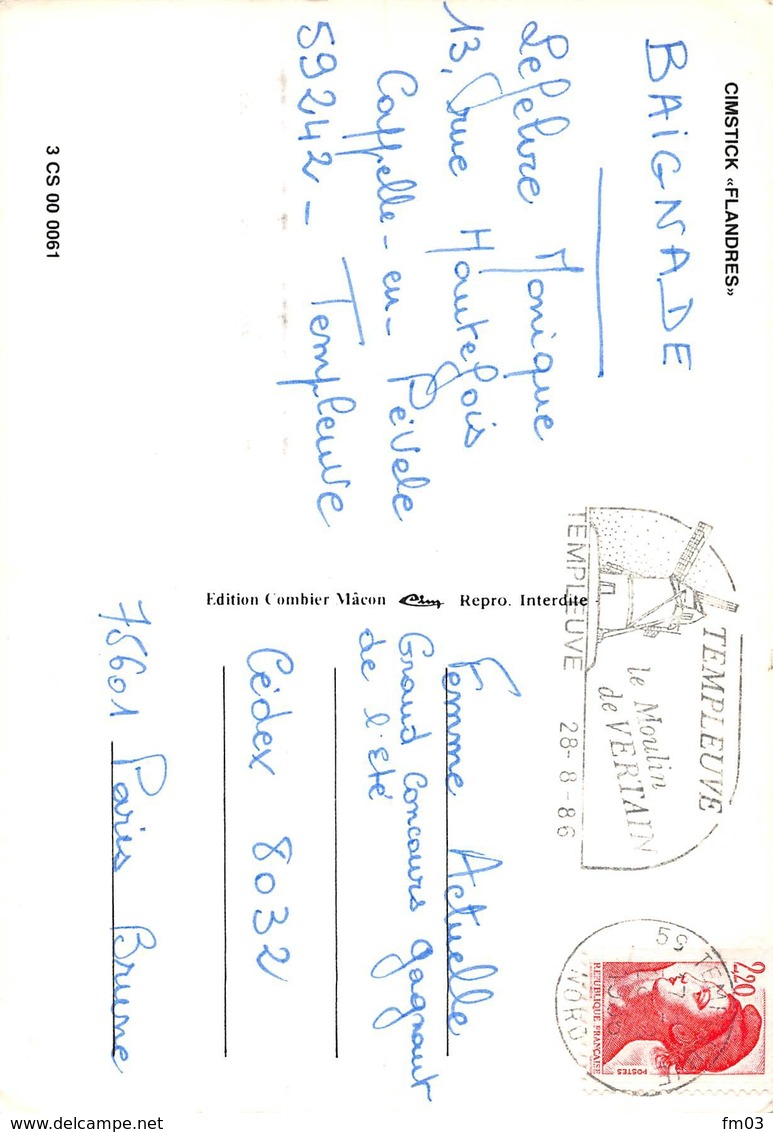 CIMSTICK «FLANDRES»
BAIGNADE
Lefelvre Monique
13, rue Hautefois
Cappelle-en-Pévele
59242 - Templeuve
3 CS 00 0061
Edition Combier Mâcon Cim Repro. Interdite
TEMPLEUVE
le Moulin
de VERTAIN
TEMPLEUVE 28-8-86
2,20
REPUBLIQUE FRANÇAISE
POSTES
59 TEMP
NORD
Femme Actuelle
Grand Concours gagnant
de l'été
Cédex 8032
75601 Paris Brune
delcampe.net
fm03